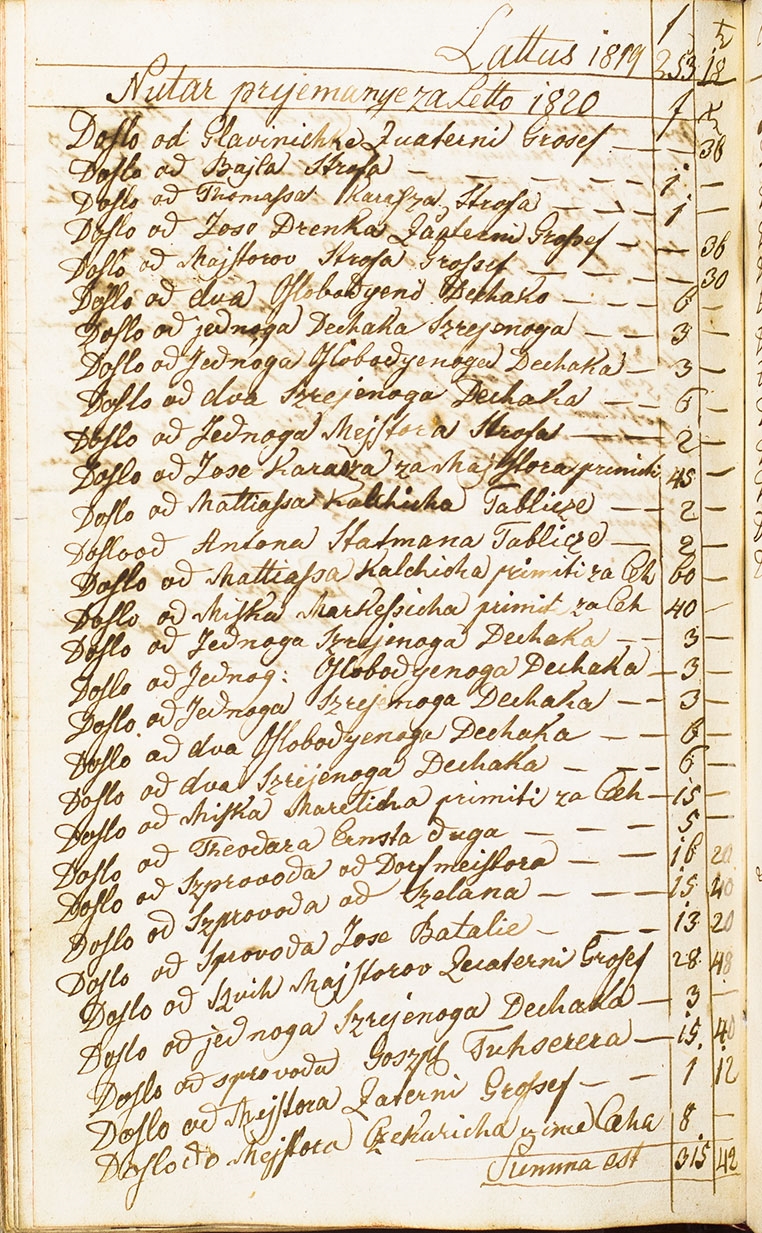 f x
Lattus 1819 253 18
Nutar pryemanye za Letto 1820 f x
Doslo od Glavinichke Quaterni Grosef — — 36
Doslo od Bajla Strofa — — — — — 1 —
Doslo od Thomassa Karasza Strofa — — — 1 —
Doslo od Joso Drenka Quaterni Grosef — — 36
Doslo od Majstorov Strofa Grosef — — — 30
Doslo od dva Oslobodyeno Dechako — — — 6 —
Doslo od jednoga Dechaka Szrejenoga — — 3 —
Doslo od Jednoga Oslobodyenoga Dechaka — 3 —
Doslo od dva Szrejenoga Dechaka — — 6 —
Doslo od Jednoga Mejstora Strofa — — 2 —
Doslo od Jose Karasza za Majstora primiti 45 —
Doslo od Mattiassa Kalchicha Tablicze — — 2 —
Doslo od Antona Hatmana Tablicze — — 2 —
Doslo od Mattiassa Kalchicha primiti za Ceh 60 —
Doslo od Miska Markessicha primit za Ceh 40 —
Doslo od Jednoga Szrejenoga Dechaka — — 3 —
Doslo od Jednog: Oslobodyenoga Dechaka — 3 —
Doslo od Jednoga Szrejenoga Dechaka — — 3 —
Doslo od dva Oslobodyenoga Dechaka — — 6 —
Doslo od dva Szrijenoga Dechaka — — — 6 —
Doslo od Miska Mareticha primiti za Ceh — 15 —
Doslo od Theodara Ernsta duga — — — 5 —
Doslo od Szprovoda od Dorfmeistora — — 16 20
Doslo od Szprovoda od Szelana — — — 15 40
Doslo od Sprovoda Jose Batalie — — — 13 20
Doslo od Szvih Majstorov Quaterni Grosef 28 48
Doslo od jednoga Szrejenoga Dechaka — 3 —
Doslo od sprovoda Goszpe Tuhserera — 15 40
Doslo od Mejstora Quaterni Grosef — — 1 12
Doslo do Mejstora Czekaricha u ime Ceha 8 —
Summa est 315 42